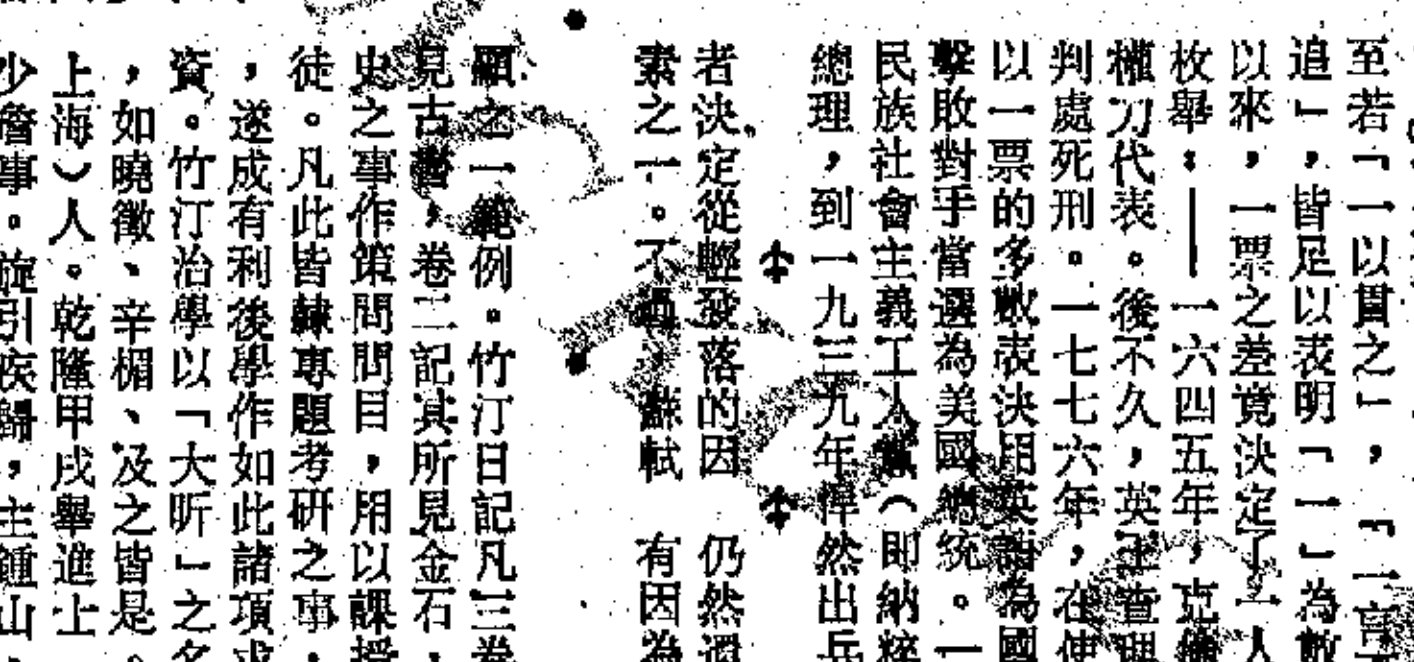 至若「一以貫之」,「一言
追」,皆足以表明「一」為數
以來,一票之差竟決定了一人
枚舉:——一六四五年,克
權刀代表。後不久,英王查理
判處死刑。一七七六年,在使
以一票的多數表決用英語為國
擊敗對手當選為美國總統。一
民族社會主義工人黨(即納粹
總理,到一九三九年悍然出兵
者決定從輕發落的因 仍然還
素之一。不過 蘇軾 有因為
顯之一範例。竹汀日記凡三卷
見古書,卷二記其所見金石,
史之事作策問問目,用以課授
徒。凡此皆隸專題考研之事,
,遂成有利後學作如此諸項求
資。竹汀治學以「大昕」之名
,如曉徵、辛楣、及之皆是。
上海)人。乾隆甲戌舉進士
少詹事。旋引疾歸,主鍾山